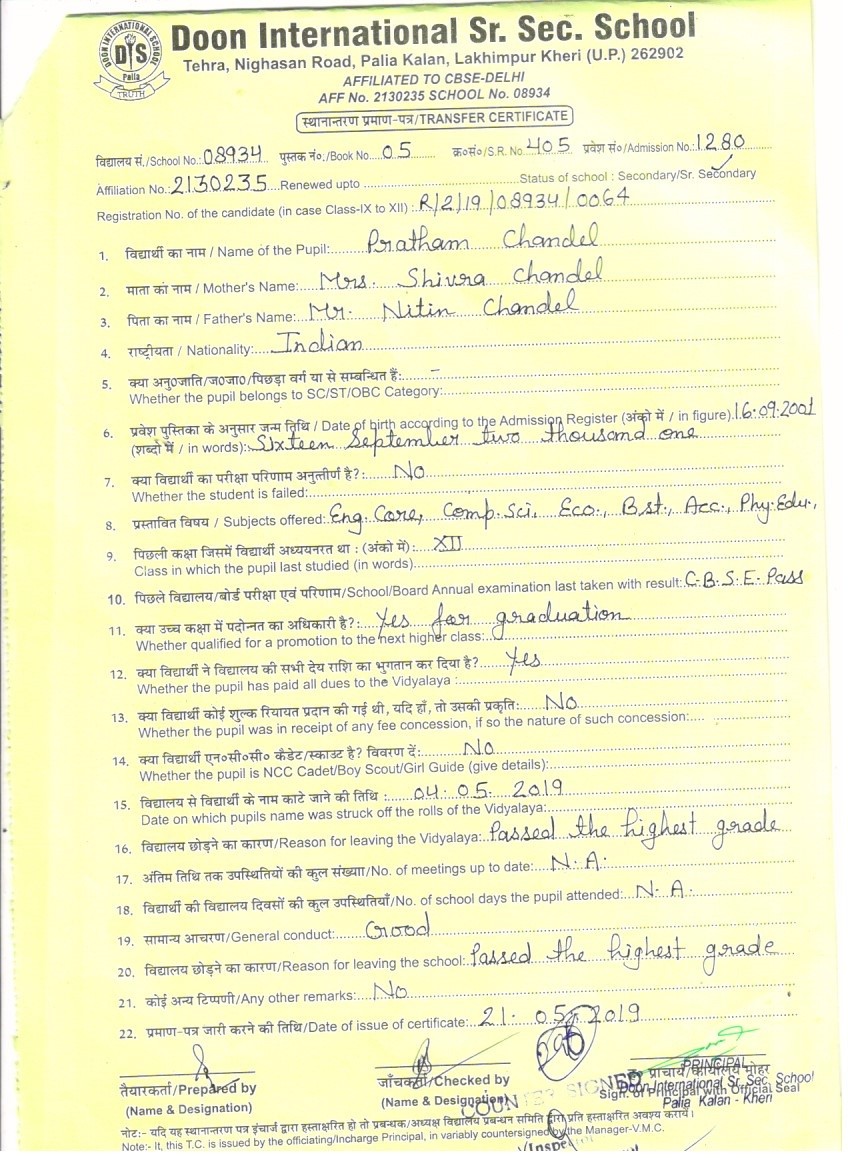 DOON INTERNATIONAL SCHOOL
DIS
Palia
TRUTH
Doon International Sr. Sec. School
Tehra, Nighasan Road, Palia Kalan, Lakhimpur Kheri (U.P.) 262902
AFFILIATED TO CBSE-DELHI
AFF No. 2130235 SCHOOL No. 08934
स्थानान्तरण प्रमाण-पत्र/TRANSFER CERTIFICATE
विद्यालय सं./School No.: 08934 पुस्तक नं०/Book No. 05 क्र०सं०/S.R. No. 405 प्रवेश सं०/Admission No.: 1280
Affiliation No.: 2130235 Renewed upto Status of school : Secondary/Sr. Secondary
Registration No. of the candidate (in case Class-IX to XII) : R/2/19/08934/0064
1. विद्यार्थी का नाम / Name of the Pupil: Pratham Chandel
2. माता का नाम / Mother's Name: Mrs. Shivra Chandel
3. पिता का नाम / Father's Name: Mr. Nitin Chandel
4. राष्ट्रीयता / Nationality: Indian
5. क्या अनु०जाति/ज०जा०/पिछड़ा वर्ग या से सम्बन्धित हैः -
Whether the pupil belongs to SC/ST/OBC Category:
6. प्रवेश पुस्तिका के अनुसार जन्म तिथि / Date of birth according to the Admission Register (अंको में / in figure) 16.09.2001
(शब्दों में / in words): Sixteen September two thousand one
7. क्या विद्यार्थी का परीक्षा परिणाम अनुत्तीर्ण है?: No
Whether the student is failed:
8. प्रस्तावित विषय / Subjects offered: Eng. Core, Comp. Sci, Eco., Bst., Acc., Phy. Edu.,
9. पिछली कक्षा जिसमें विद्यार्थी अध्ययनरत था : (अंको में): XII
Class in which the pupil last studied (in words)
10. पिछले विद्यालय/बोर्ड परीक्षा एवं परिणाम/School/Board Annual examination last taken with result: C.B.S.E. Pass
11. क्या उच्च कक्षा में पदोन्नत का अधिकारी है?: Yes for graduation
Whether qualified for a promotion to the next higher class:
12. क्या विद्यार्थी ने विद्यालय की सभी देय राशि का भुगतान कर दिया है? Yes
Whether the pupil has paid all dues to the Vidyalaya :
13. क्या विद्यार्थी कोई शुल्क रियायत प्रदान की गई थी, यदि हाँ, तो उसकी प्रकृति: No
Whether the pupil was in receipt of any fee concession, if so the nature of such concession:
14. क्या विद्यार्थी एन०सी०सी० कैडेट/स्काउट है? विवरण दें: No
Whether the pupil is NCC Cadet/Boy Scout/Girl Guide (give details):
15. विद्यालय से विद्यार्थी के नाम काटे जाने की तिथि : 04.05.2019
Date on which pupils name was struck off the rolls of the Vidyalaya:
16. विद्यालय छोड़ने का कारण/Reason for leaving the Vidyalaya: Passed the highest grade
17. अंतिम तिथि तक उपस्थितियों की कुल संख्या/No. of meetings up to date: N.A.
18. विद्यार्थी की विद्यालय दिवसों की कुल उपस्थितियाँ/No. of school days the pupil attended: N.A.
19. सामान्य आचरण/General conduct: Good
20. विद्यालय छोड़ने का कारण/Reason for leaving the school: Passed the highest grade
21. कोई अन्य टिप्पणी/Any other remarks: No
22. प्रमाण-पत्र जारी करने की तिथि/Date of issue of certificate: 21.05.2019
तैयारकर्ता/Prepared by
(Name & Designation)
जाँचकर्ता/Checked by
(Name & Designation)
COUNTER SIGNED
PRINCIPAL
प्राचार्य/कार्यालय मोहर
Doon International Sr. Sec. School
Sign. of Principal with Official Seal
Palia Kalan - Kheri
नोटः- यदि यह स्थानान्तरण पत्र इंचार्ज द्वारा हस्ताक्षरित हो तो प्रबन्धक/अध्यक्ष विद्यालय प्रबन्धन समिति द्वारा प्रति हस्ताक्षरित अवश्य करायें।
Note:- It, this T.C. is issued by the officiating/Incharge Principal, in variably countersigned by the Manager-V.M.C.